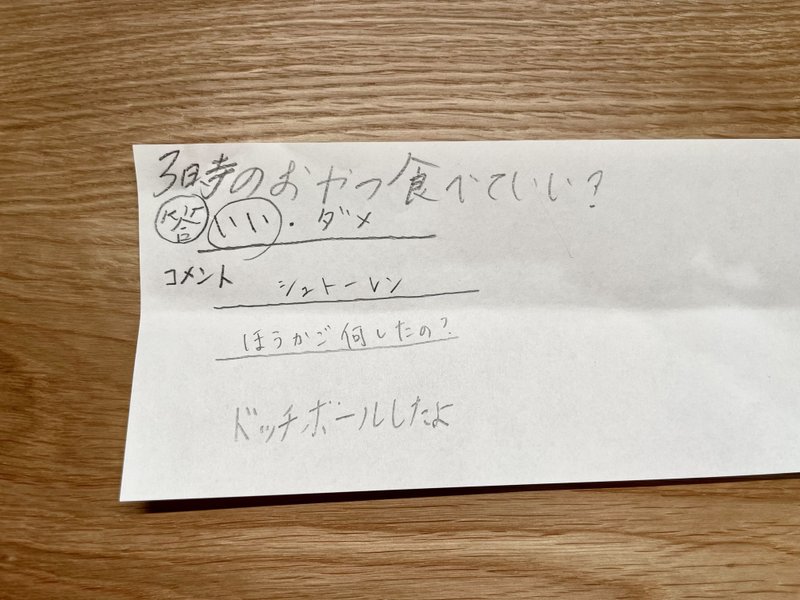 3時のおやつ食べていい?
答 いい・ダメ
コメント シュトーレン
ほうかご何したの?
ドッチボールしたよ